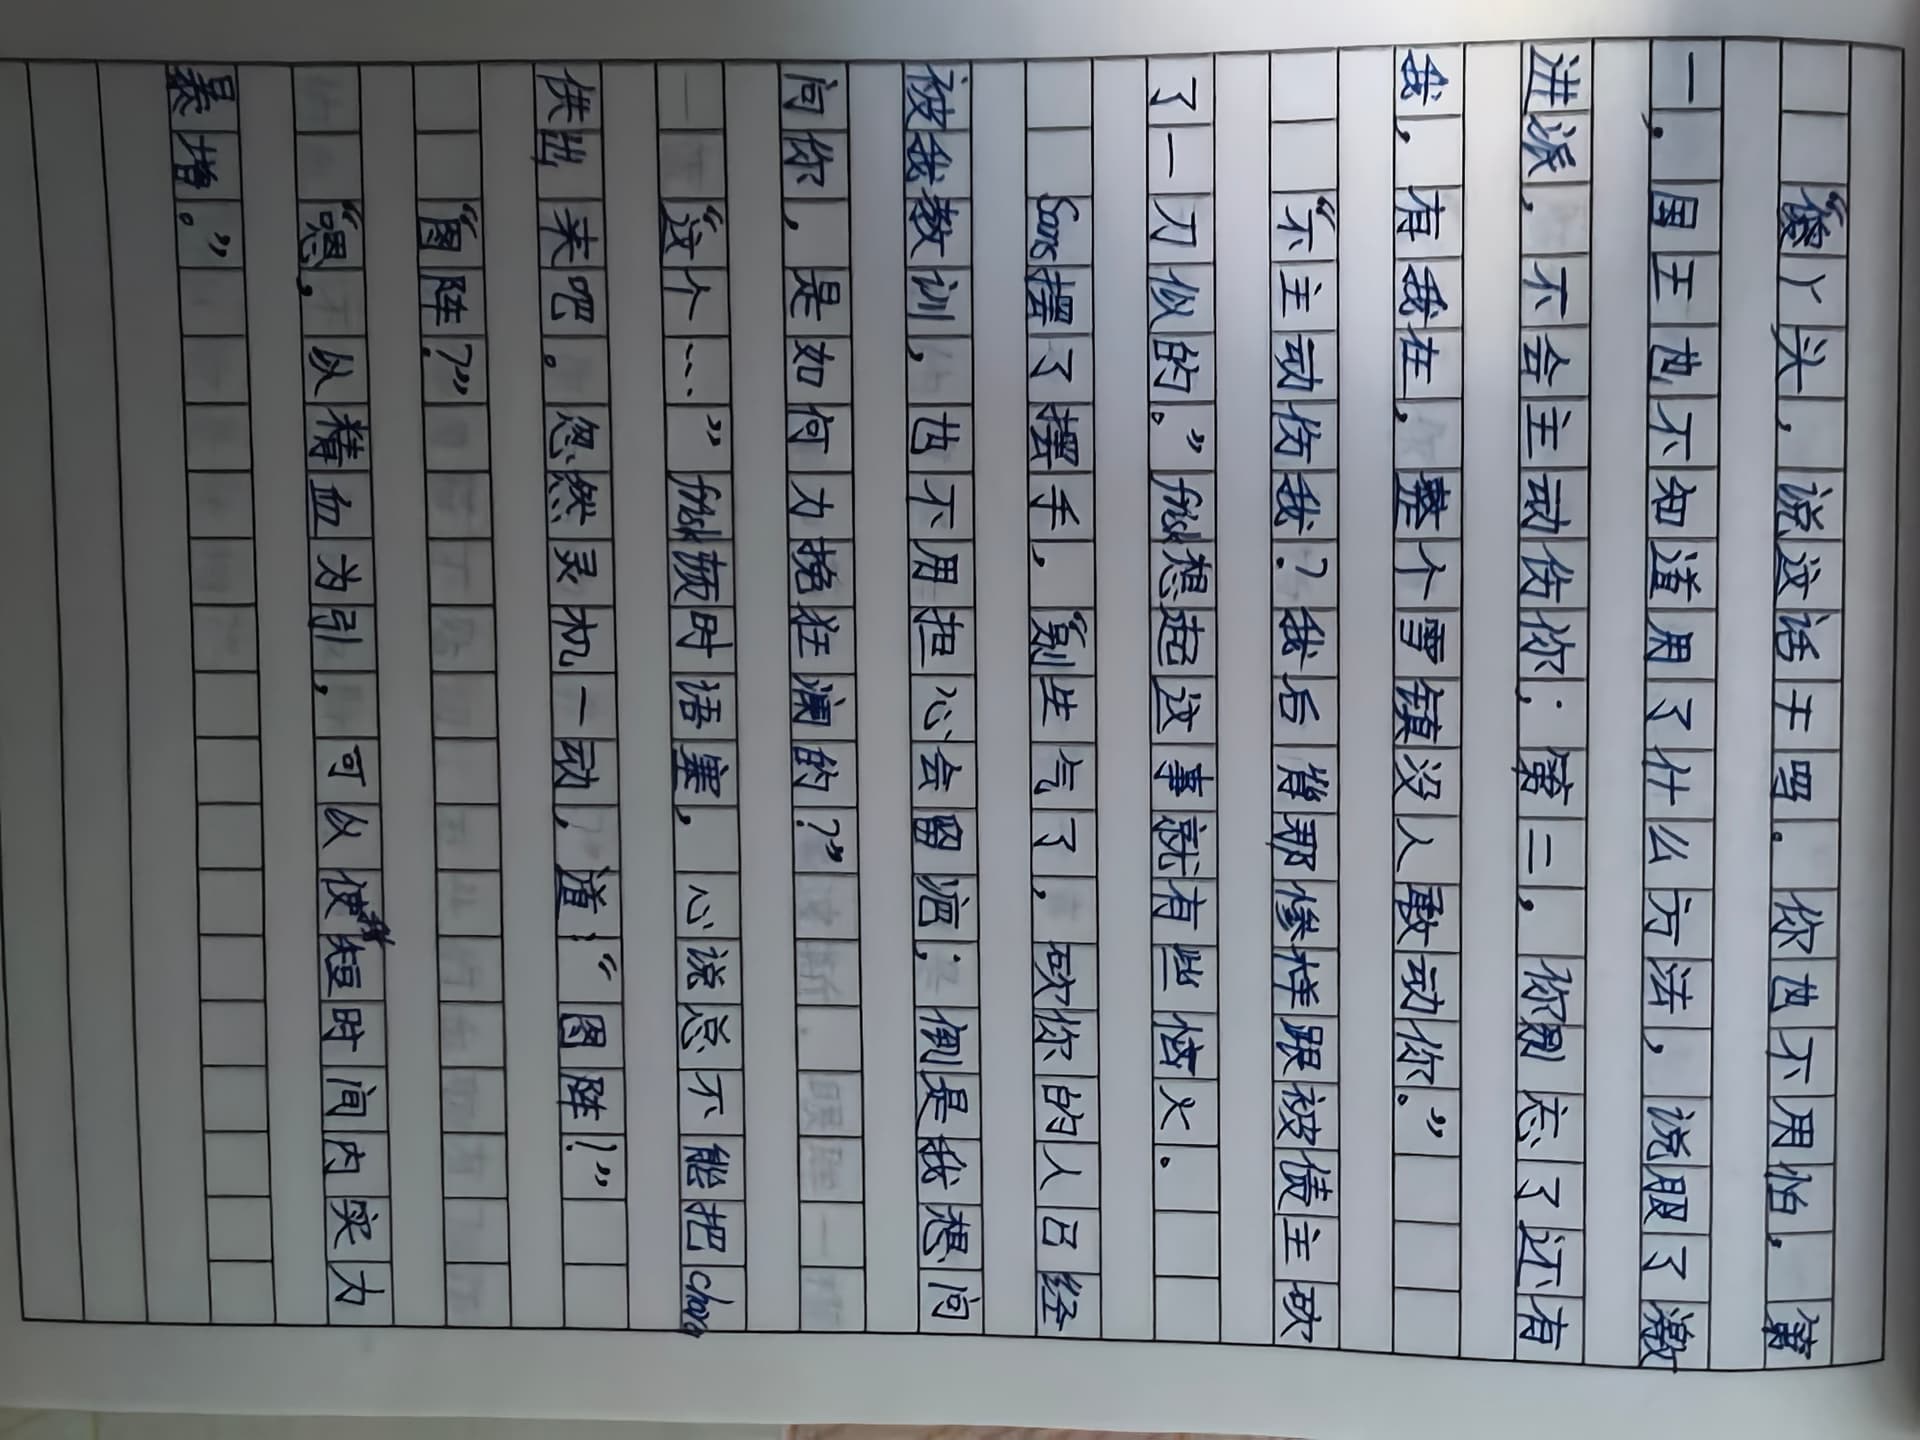 “傻丫头，说这话干啥。你也不用怕，第
一，国王也不知道用了什么方法，说服了激
进派，不会主动伤你；第二，你别忘了还有
我，有我在，整个雪镇没人敢动你。”
“不主动伤我？我后背那惨样跟被债主砍
了一刀似的。”frisk想起这事就有些恼火。
Sans摆了摆手，“别生气了，砍你的人已经
被我教训，也不用担心会留疤；倒是我想问
问你，是如何力挽狂澜的？”
“这个…”frisk顿时语塞，心说总不能把chara
供出来吧。忽然灵机一动，道：“图阵！”
“图阵？”
“嗯，以精血为引，可以使我短时间内实力
暴增。”